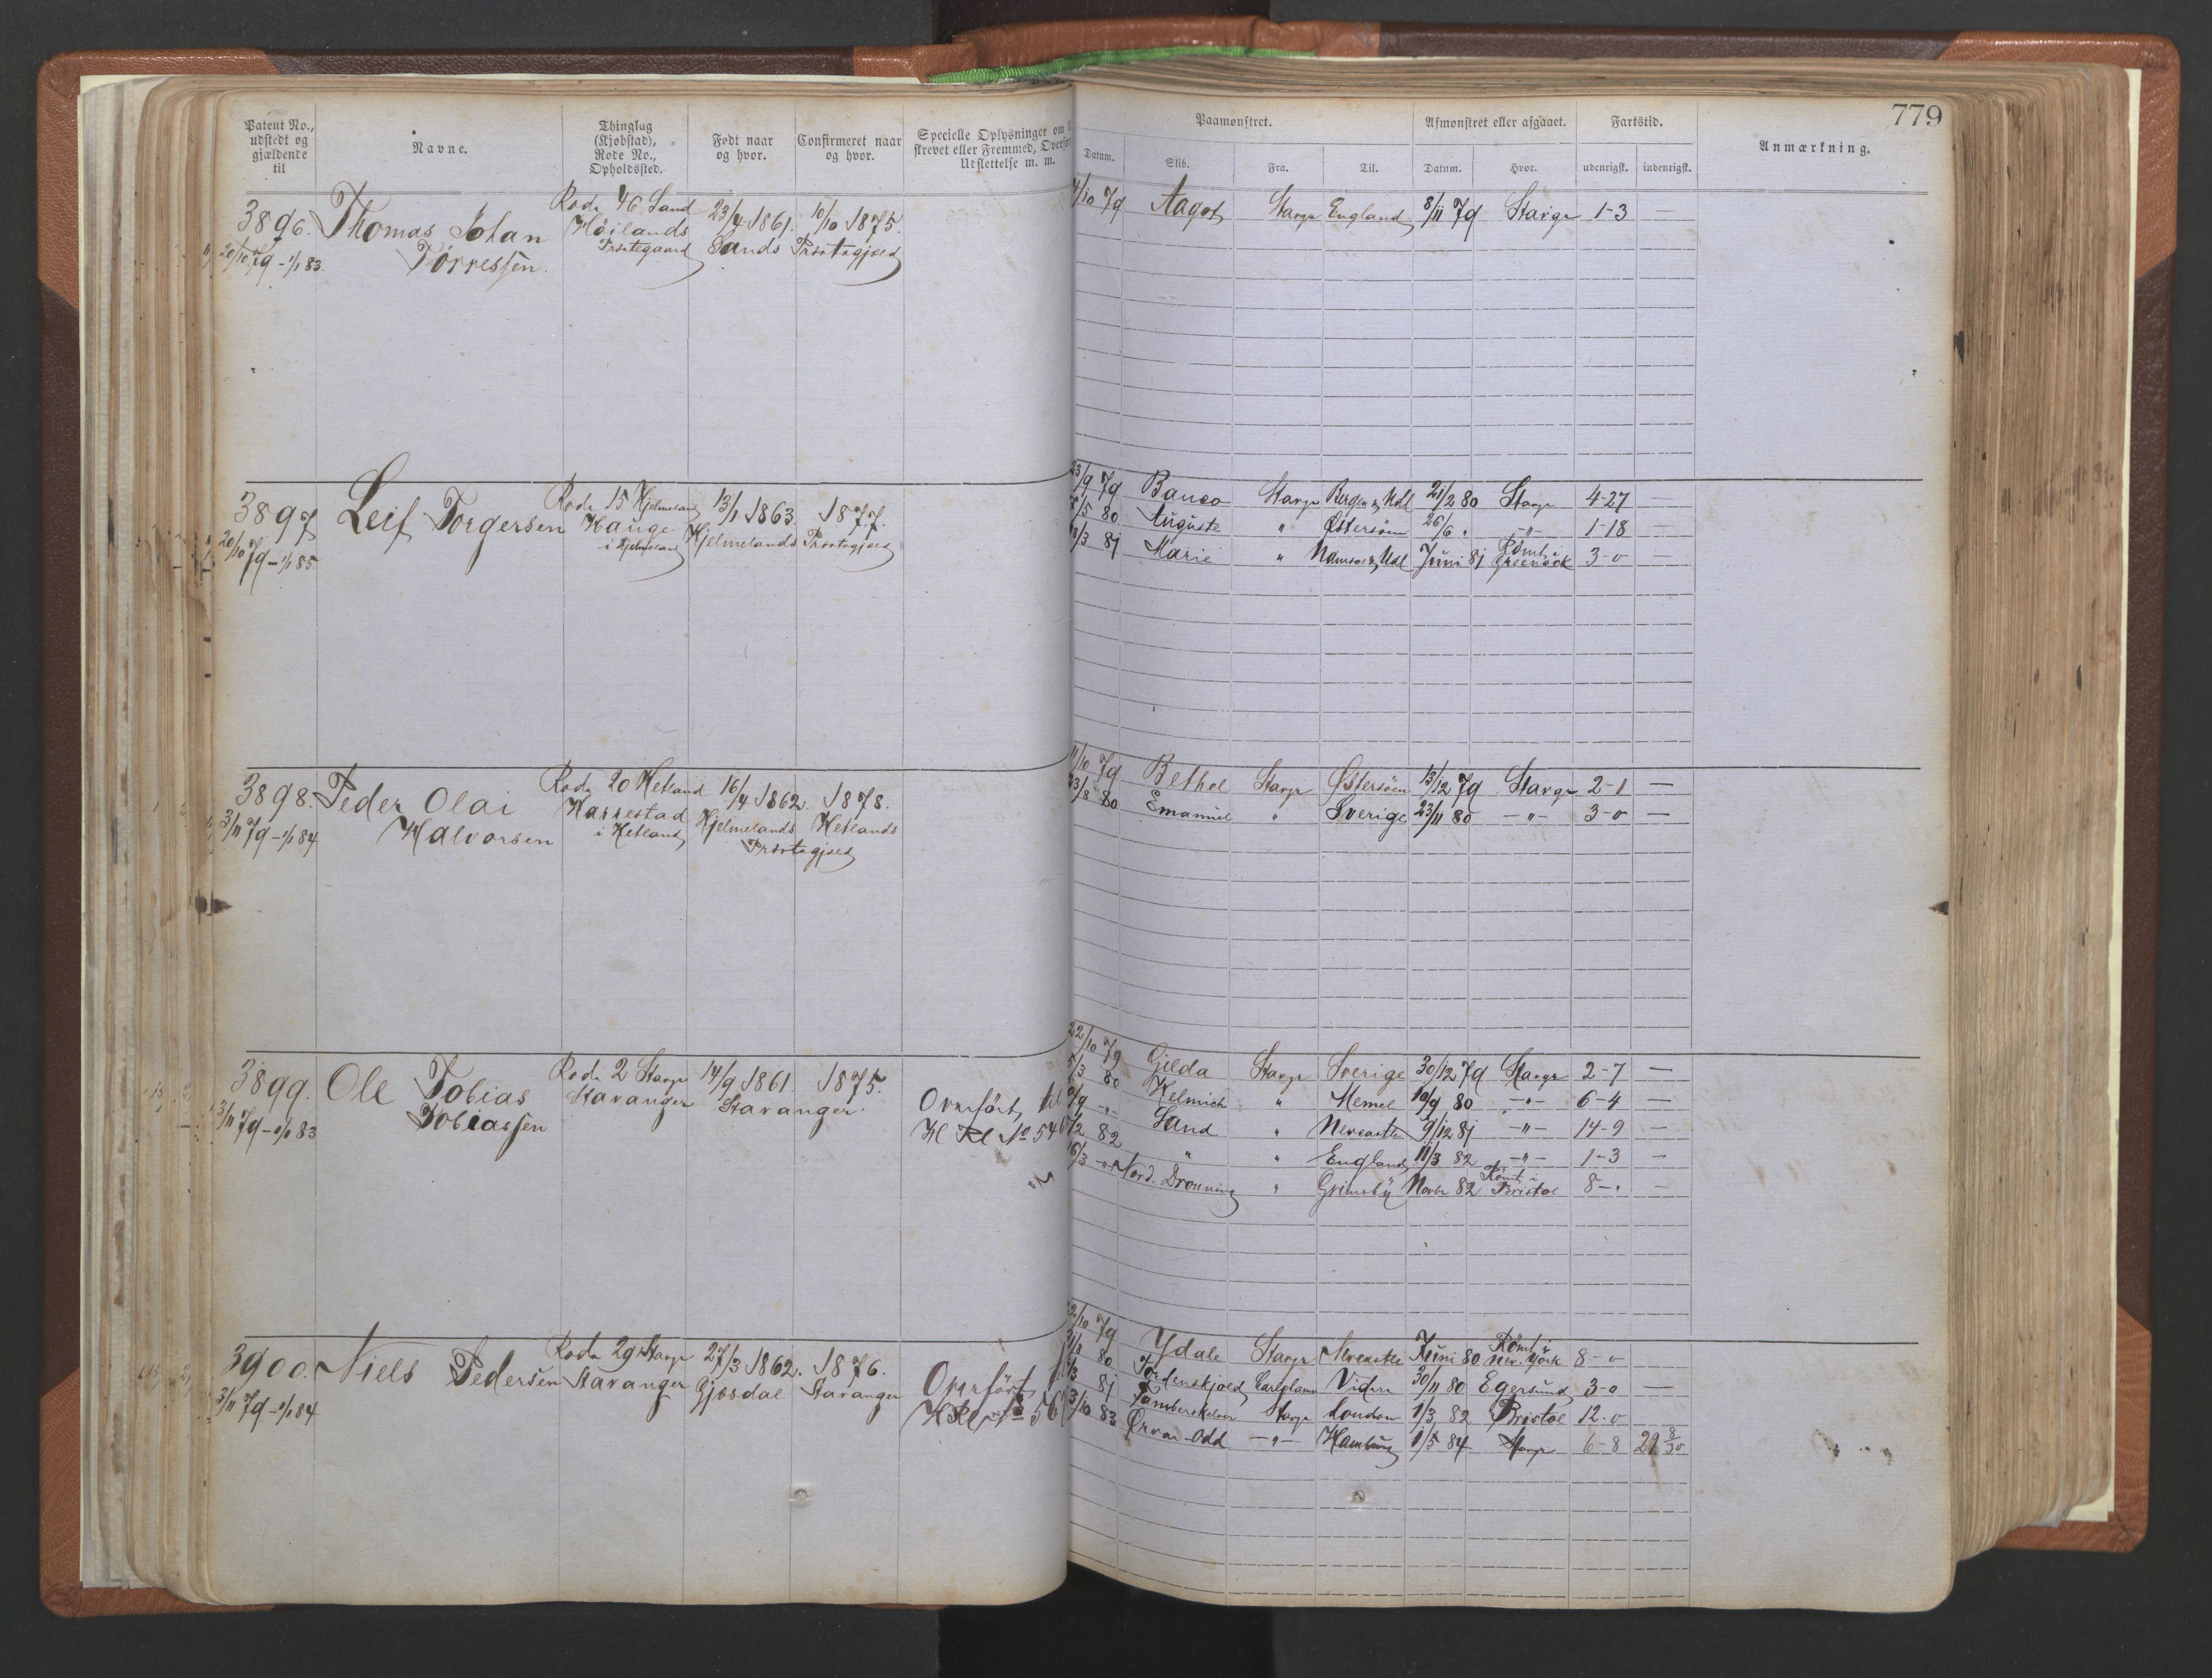 779
Patent No., udstedt og gjældende til
Navne.
Thinglag (Kjøbstad), Rode No., Opholdssted.
Født naar og hvor.
Confirmeret naar og hvor.
Specielle Oplysninger om
strevet eller Fremmed, Overf
Udslettelse m. m.
Paamønstret.
Afmønstret eller afgaaet.
Fartstid.
Anmærkning.
Datum.
Skib.
Fra.
Til.
Datum.
Hvor.
udenrigsk.
indenrigsk.
3896.
20/10 79 - 1/1 83.
Thomas Johan
Törressen.
Rode 46 Sand
Höilands
Præstegaard
23/4 1861.
Sands
10/10 1875.
Præstegjæld
4/10 79 Aagot Stavgr England 8/11 79 Stavgr 1-3 —
3897
20/10 79 - 1/1 85
Leif Torgersen
Rode 15 Hjelmeland
Hauge
i Hjelmeland
13/1 1863.
Hjelmelands
1877.
Præstegjæld
23/9 79 Banco Stavgr Bergen & Udl 21/2 80 Stavgr 4-27 —
/5 80 Auguste " Østersöen 26/6 " -"- 1-18 —
/3 81 Marie " Namsos & Udl Juni 81 Römt i Greenock 3-0 —
3898.
3/11 79 - 1/1 84
Peder Olai
Halvorsen
Rode 20 Hetland
Harrestad
i Hetland
16/4 1862.
Hjelmelands
1878.
Hetlands
Præstegjæld
11/10 79 Bethel Stavgr Østersöen 13/12 79 Stavgr 2-1 —
/8 80 Emanuel " Sverige 23/11 80 -"- 3-0 —
3899.
3/11 79 - 1/1 83
Ole Tobias
Tobiassen
Rode 2 Stavgr
Stavanger
14/9 1861.
1875.
Stavanger.
Overfört til
H Rl No 546
22/10 79 Gilda Stavgr Sverige 30/12 79 Stavgr 2-7 —
5/3 80 Helmich " Memel 10/9 80 -"- 6-4 —
/9 -"- Sand " Newcastle 9/12 81 -"- 14-9 —
/2 82 " " England 11/3 82 -"- 1-3 —
16/3 -"- Nord. Dronning " Grimsby Novbr 82 Römt i Bristol 8-" —
3900.
3/11 79 - 1/1 84
Niels Pedersen
Rode 29 Stavgr
Stavanger
27/3 1862.
Gjesdal
1876.
Stavanger
Overfört
H Rl No 56
/10 79 Ydale Stavgr Newcastle Juni 80 Römt i New-York 8-0
/8 80 Tordenskjold Viden 30/11 80 Egersund 3-0 —
/3 81 Tamberskelver Stavgr London 1/3 82 Bristol 12-0
3/10 83 Ørvar-Odd -"- Hamburg 1/5 84 Stavgr 6-8 29 8/30